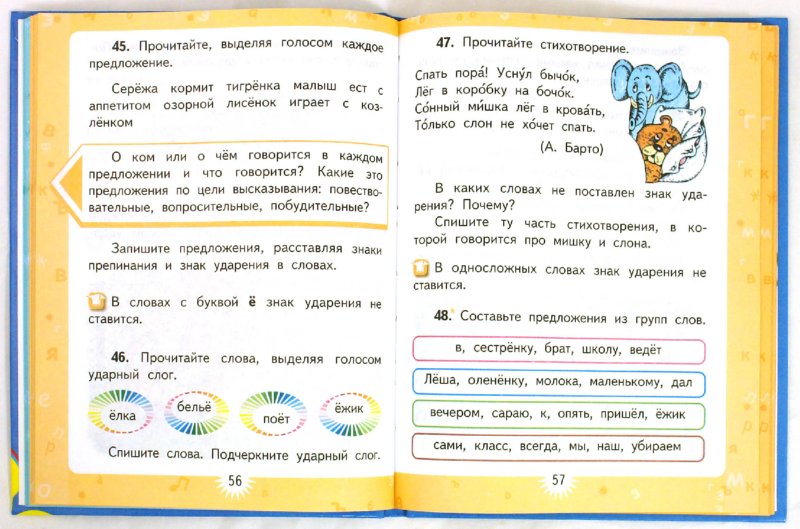 45. Прочитайте, выделяя голосом каждое
предложение.
Серёжа кормит тигрёнка малыш ест с
аппетитом озорной лисёнок играет с коз-
лёнком
О ком или о чём говорится в каждом
предложении и что говорится? Какие это
предложения по цели высказывания: повество-
вательные, вопросительные, побудительные?
Запишите предложения, расставляя знаки
препинания и знак ударения в словах.
В словах с буквой ё знак ударения не
ставится.
46. Прочитайте слова, выделяя голосом
ударный слог.
ёлка
бельё
поёт
ёжик
Спишите слова. Подчеркните ударный слог.
56
47. Прочитайте стихотворение.
Спать пора́! Усну́л бычо́к,
Лёг в коро́бку на бочо́к.
Со́нный ми́шка лёг в крова́ть,
То́лько слон не хо́чет спать.
(А. Барто)
В каких словах не поставлен знак уда-
рения? Почему?
Спишите ту часть стихотворения, в ко-
торой говорится про мишку и слона.
В односложных словах знак ударения не
ставится.
48.* Составьте предложения из групп слов.
в, сестрёнку, брат, школу, ведёт
Лёша, оленёнку, молока, маленькому, дал
вечером, сараю, к, опять, пришёл, ёжик
сами, класс, всегда, мы, наш, убираем
57